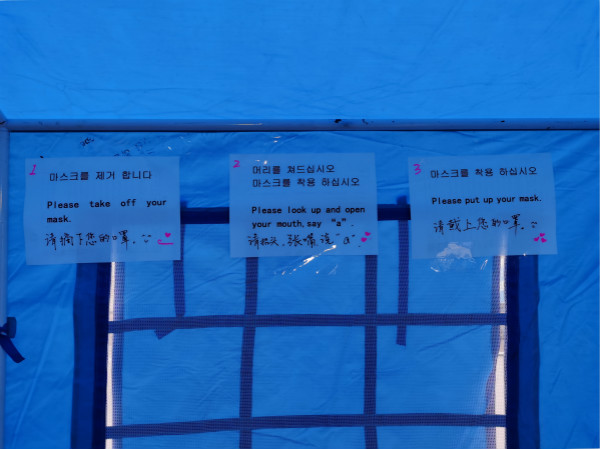 1
마스크를 제거 합니다
Please take off your
mask.
请摘下您的口罩.
2
머리를 쳐드십시오
마스크를 착용 하십시오
Please look up and open
your mouth, say "a".
请抬头.张嘴说"a".
3
마스크를 착용 하십시오
Please put up your mask.
请戴上您的口罩.